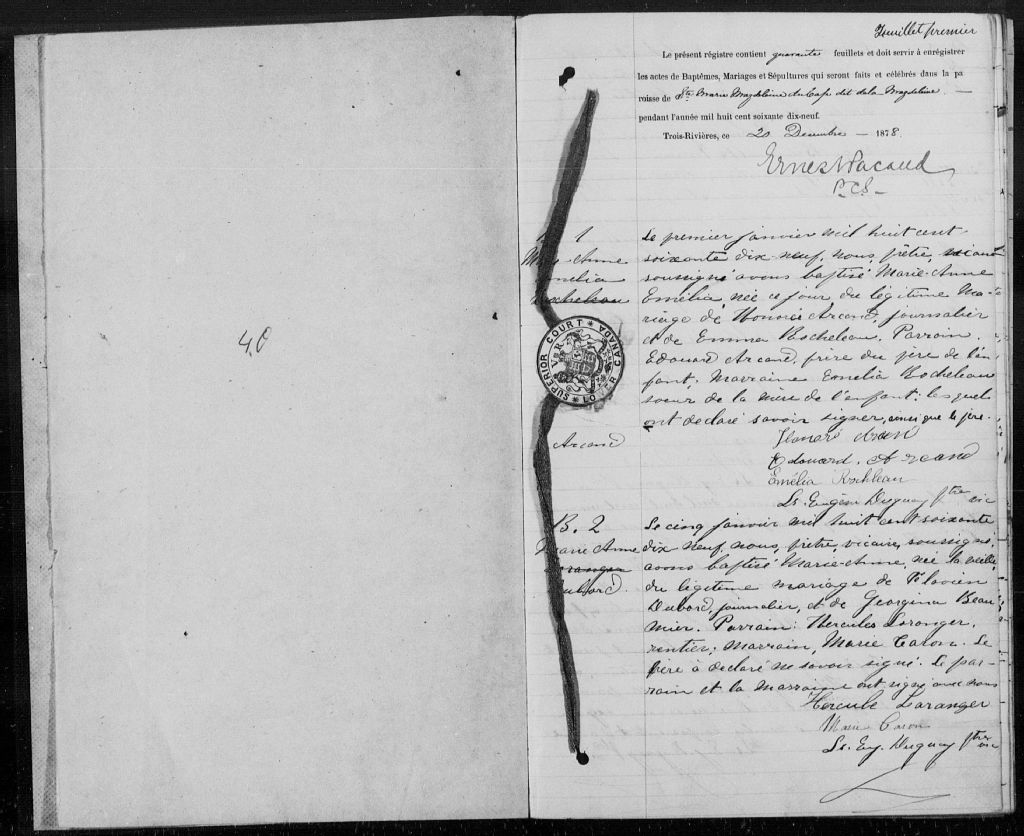 40
Feuillet premier
Le présent régistre contient quarante feuillets et doit servir à enrégistrer
les actes de Baptêmes, Mariages et Sépultures qui seront faits et célébrés dans la pa
roisse de Ste Marie Magdeleine du Cap dit de la Magdeleine —
pendant l'année mil huit cent soixante dix-neuf.
Trois-Rivières, ce 20 Decembre — 1878.
Ernest Pacaud
P.C.S.
1
Anne
Rocheleau
SUPERIOR COURT * LOWER CANADA *
V R
Arcand
Le premier janvier mil huit cent
soixante dix-neuf, nous, prêtre, vicaire
soussigné avons baptisé Marie-Anne
Emélia, née ce jour du légitime Ma-
riage de Honoré Arcand, journalier
et de Emma Rocheleau. Parrain,
Edouard Arcand, frère du père de l'en
fant; Marraine Emélia Rocheleau
soeur de la mère de l'enfant; lesquels
ont déclaré savoir signer, ainsi que le père.
Honoré Arcand
Edouard. Arcand
Emélia Rochleau
Ls. Eugène Duguay Ptre vic
B. 2
Marie Anne
Loranger
Dubord
Le cinq janvier mil huit cent soixante
dix neuf, nous, prêtre, vicaire, soussigné,
avons baptisé Marie-Anne, née la veille
du légitime mariage de Flavien
Dubord, journalier, et de Georgina Beau
mier. Parrain: Hercules Loranger,
rentier; marrain, Marie Caron. Le
père à déclaré ne savoir signé. Le par-
rain et la marraine ont signé avec nous
Hercule Laranger
Marie Caron
Ls. Eug. Duguay Ptre vic